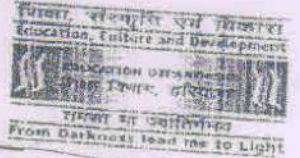 शिक्षा, संस्कृति एवं विकास
Education, Culture and Development
EDUCATION
शिक्षा विभाग, हरियाणा
तमसो मा ज्योतिर्गमय
From Darkness lead me to Light